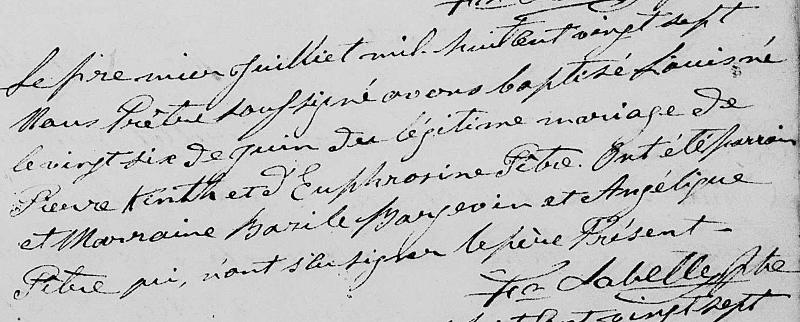 Le premier Juilliet mil-huit Cent vingt sept
Nous Prêtre soussigné avons baptisé Louis né
le vingt six de juin du légitime mariage de
Pierre Kenth et d'Euphrosine Pitre. Ont été parrain
et Marraine Basile Bargevin et Angélique
Pitre qui, n'ont su signer le père Présent-
Frs Labelle Ptre
Cent vingt sept